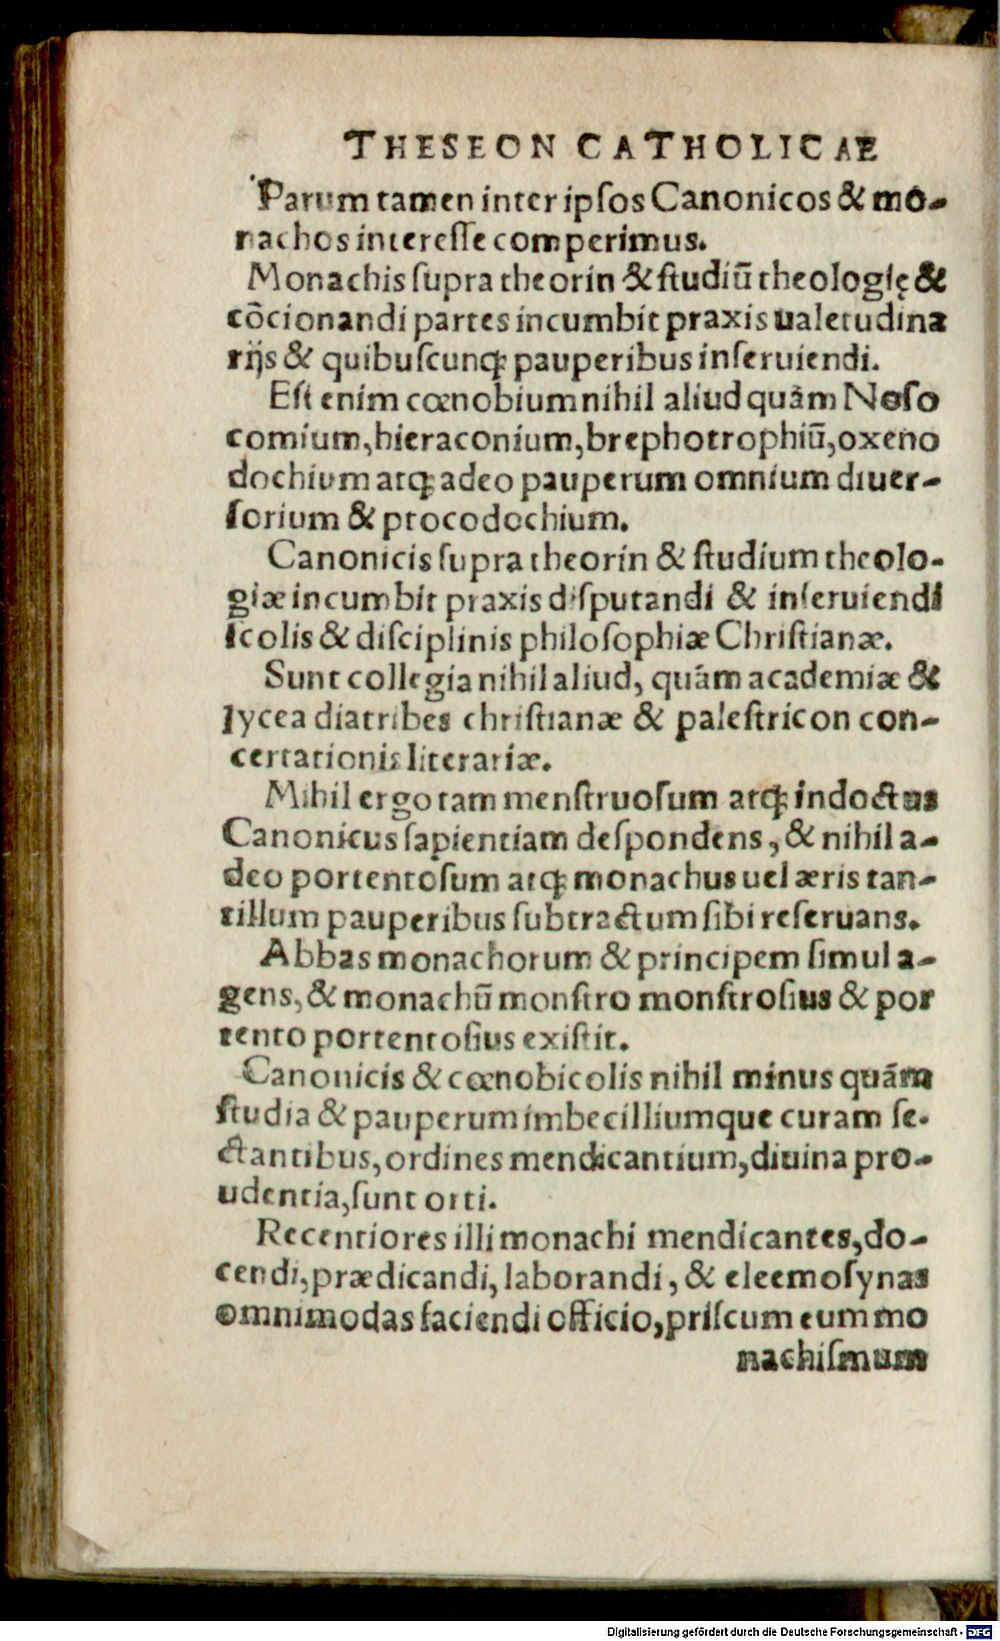 THESEON CATHOLICAE
Parum tamen inter ipſos Canonicos & mo-
nachos intereſſe comperimus.
Monachis ſupra theorin & ſtudiū theologię &
cōcionandi partes incumbit praxis ualetudina
rijs & quibuſcunqꝫ pauperibus inſeruiendi.
Eſt enim cœnobium nihil aliud quàm Noſo
comium, hieraconium, brephotrophiū, oxeno
dochium atqꝫ adeo pauperum omnium diuer-
ſorium & ptocodochium.
Canonicis ſupra theorin & ſtudium theolo-
giæ incumbit praxis diſputandi & inſeruiendi
ſcolis & diſciplinis philoſophiæ Chriſtianæ.
Sunt collegia nihil aliud, quàm academiæ &
lycea diatribes chriſtianæ & paleſtricon con-
certationis literariæ.
Mihil ergo tam menſtruoſum atqꝫ indoctus
Canonicus ſapientiam deſpondens, & nihil a-
deo portentoſum atqꝫ monachus uel æris tan-
tillum pauperibus ſubtractum ſibi reſeruans.
Abbas monachorum & principem ſimul a-
gens, & monachū monſtro monſtroſius & por
tento portentoſius exiſtit.
Canonicis & cœnobicolis nihil minus quàm
ſtudia & pauperum imbecilliumque curam ſe-
ctantibus, ordines mendicantium, diuina pro-
udentia, ſunt orti.
Recentiores illi monachi mendicantes, do-
cendi, prædicandi, laborandi, & eleemoſynas
omnimodas faciendi officio, priſcum eum mo
nachiſmum
Digitalisierung gefördert durch die Deutsche Forschungsgemeinschaft - DFG